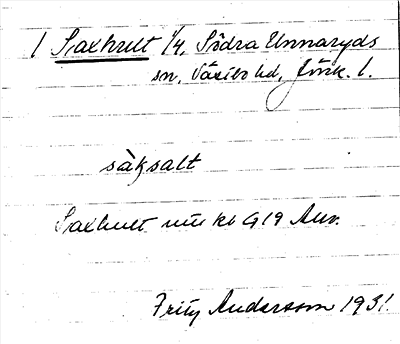 1 Saxhult 1/4, Södra Unnaryds
sn, Västbo hd, Jönk. l.
sàksalt
Saxhult 1919 Auv.
Fritz Andersson 1931.